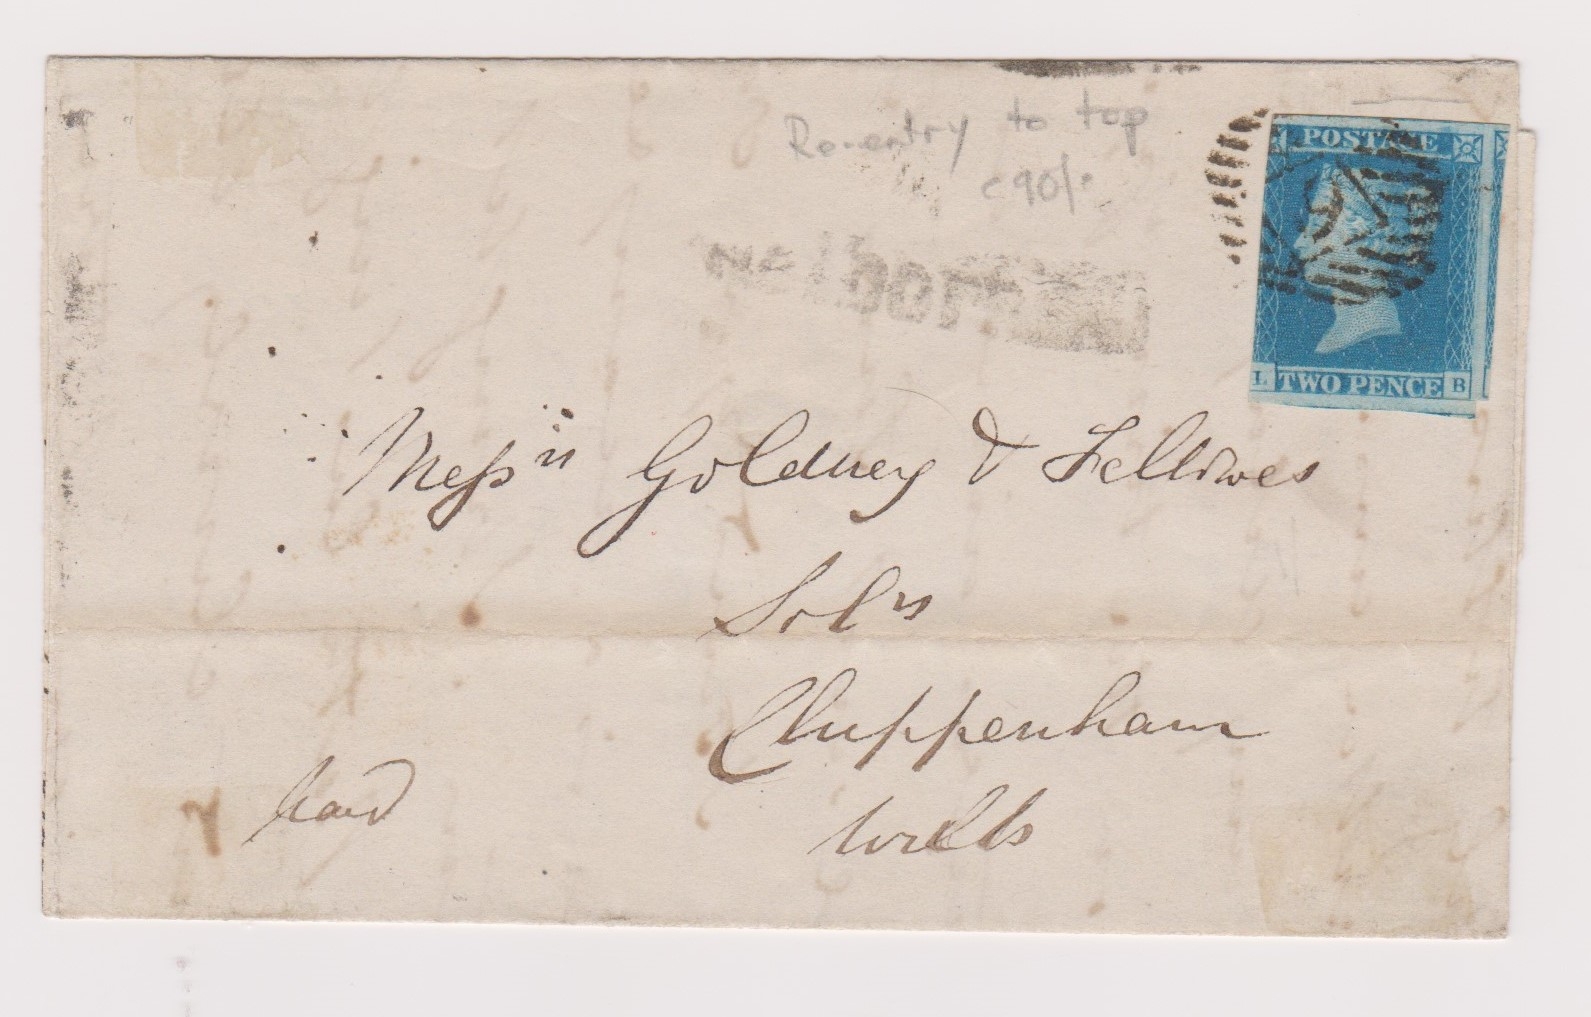 Re-entry to top
c90/-
POSTAGE
TWO PENCE
L B
Messrs Goldney & Fellowes
Solrs
Chippenham
Wilts